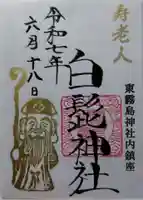 寿老人
東霧島神社内鎮座
白髭神社
令和七年
六月十八日